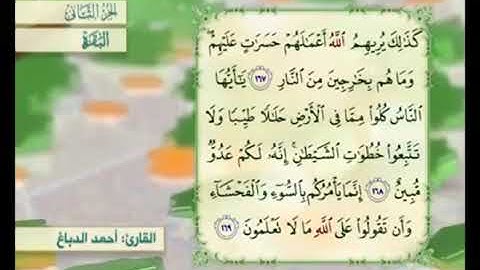 الجزء الثاني
البقرة
كَذَٰلِكَ يُرِيهِمُ اللَّهُ أَعْمَالَهُمْ حَسَرَاتٍ عَلَيْهِمْ
وَمَا هُم بِخَارِجِينَ مِنَ النَّارِ ١٦٧ يَا أَيُّهَا
النَّاسُ كُلُوا مِمَّا فِي الْأَرْضِ حَلَالًا طَيِّبًا وَلَا
تَتَّبِعُوا خُطُوَاتِ الشَّيْطَانِ إِنَّهُ لَكُمْ عَدُوٌّ
مُّبِينٌ ١٦٨ إِنَّمَا يَأْمُرُكُم بِالسُّوءِ وَالْفَحْشَاءِ
وَأَن تَقُولُوا عَلَى اللَّهِ مَا لَا تَعْلَمُونَ ١٦٩
القارئ: أحمد الدباغ